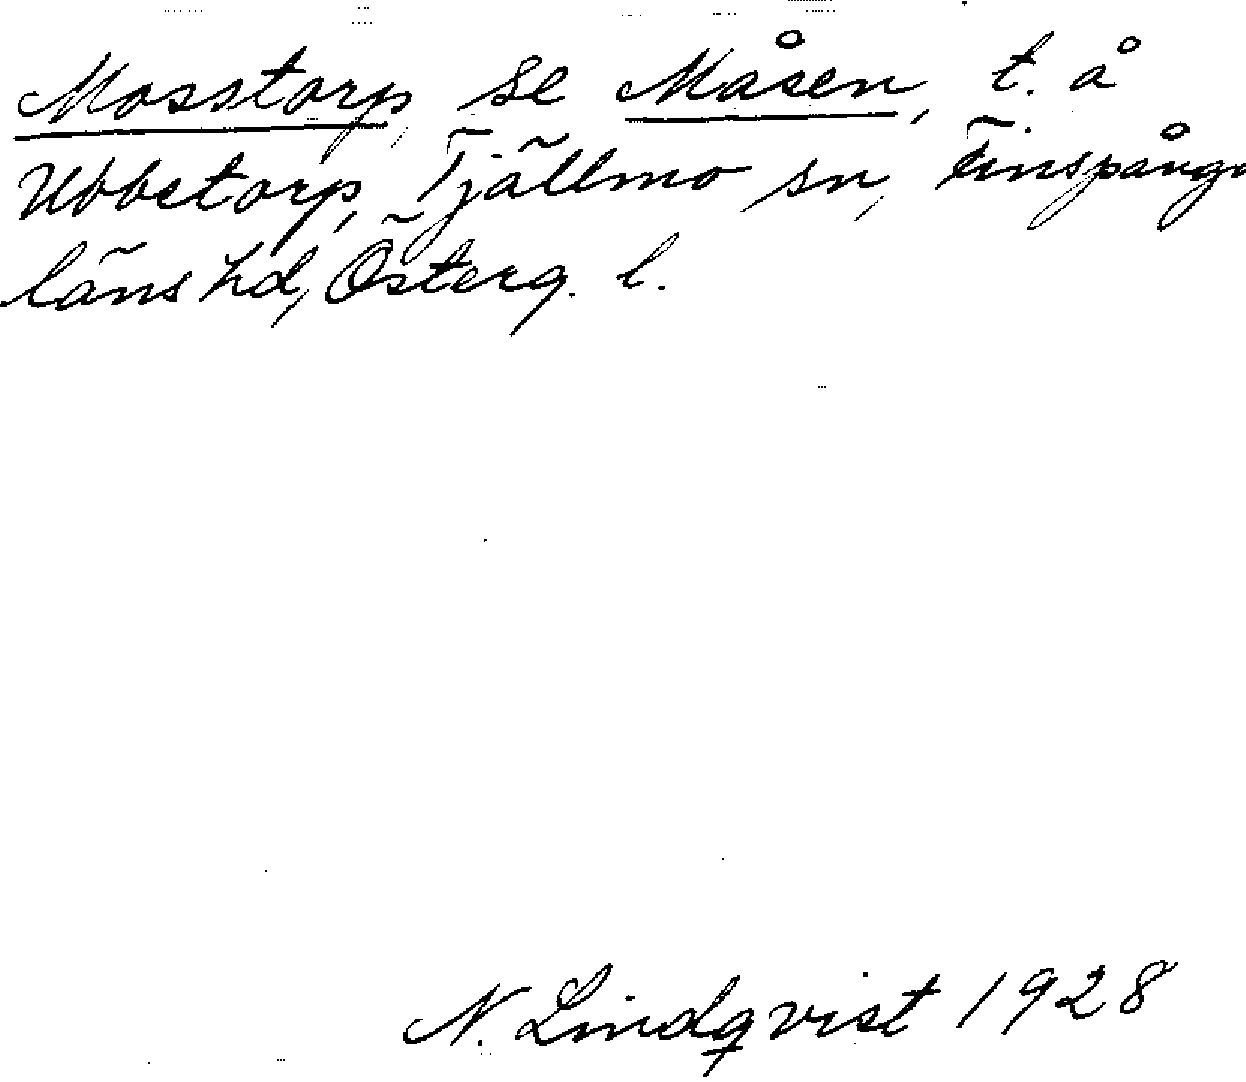 Mosstorp, se Måsen, t. å
Ubbetorp, Tjällmo sn, Finspånga
läns hd, Österg. l.
N. Lindqvist 1928